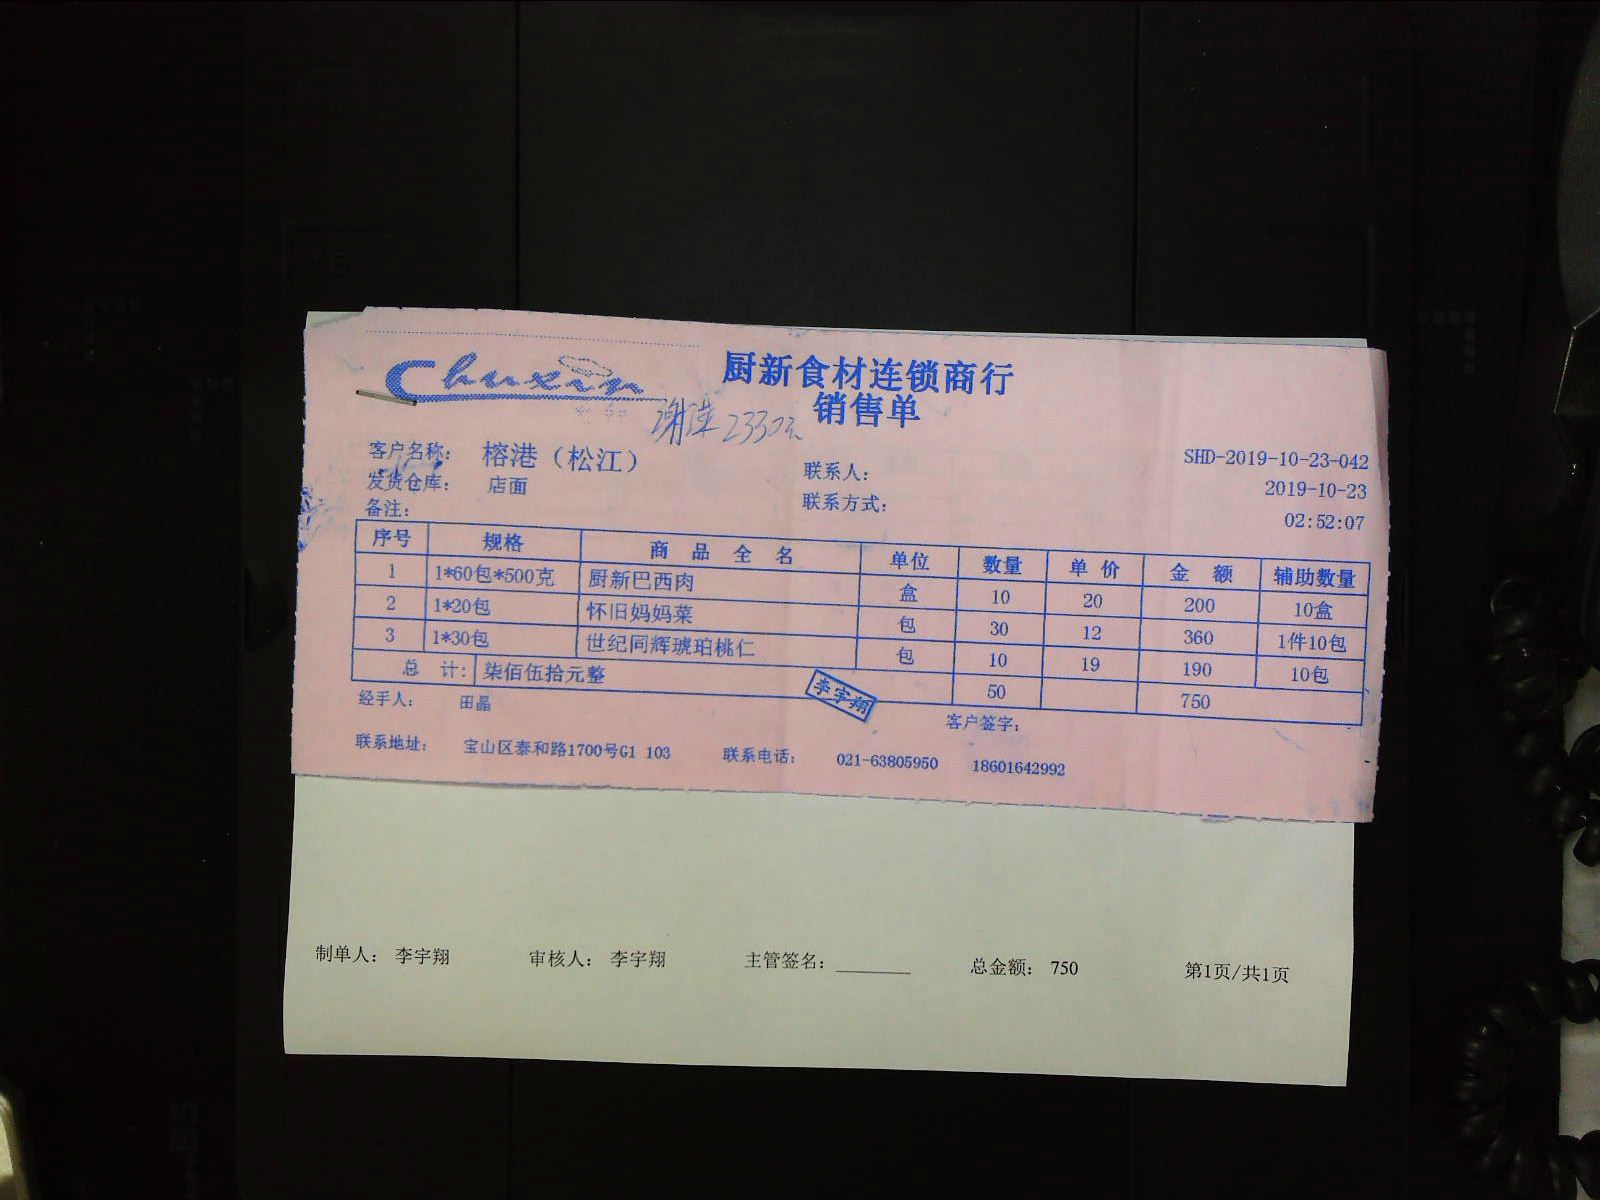 Chuxin
厨新食材连锁商行
销售单
2330元
客户名称： 榕港（松江） 联系人： SHD-2019-10-23-042
发货仓库： 店面 联系方式： 2019-10-23
备注： 02:52:07
序号 规格 商品全名 单位 数量 单价 金额 辅助数量
1 1*60包*500克 厨新巴西肉 盒 10 20 200 10盒
2 1*20包 怀旧妈妈菜 包 30 12 360 1件10包
3 1*30包 世纪同辉琥珀桃仁 包 10 19 190 10包
总 计: 柒佰伍拾元整 50 750
李宇翔
经手人： 田晶 客户签字：
联系地址： 宝山区泰和路1700号G1 103 联系电话： 021-63805950 18601642992
制单人： 李宇翔 审核人： 李宇翔 主管签名：________ 总金额： 750 第1页/共1页